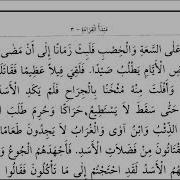 مَبْدَأُ الْقِرَاءَةِ - ٣٠
عَلَى السَّعَةِ وَالْخِصْبِ فَلَبِثَ زَمَانًا إِلَى أَنْ مَضَى
الْأَيَّامِ يَطْلُبُ صَيْدًا. فَلَقِيَ فِيلًا عَظِيمًا فَقَاتَلَ
وَأَفْلَتَ مِنْهُ مُثْخَنًا بِالْجِرَاحِ فَلَمْ يَكَدِ الْأَسَدُ
حَتَّى سَقَطَ لَا يَسْتَطِيعُ حَرَاكًا وَحُرِمَ طَلَبَ
الذِّئْبُ وَابْنُ آوَى وَالْغُرَابُ لَا يَجِدُونَ طَعَامًا
يَقْتَاتُونَ مِنْ فَضَلَاتِ الْأَسَدِ. فَأَجْهَدَهُمُ الْجُوعُ وَ
الْأَسَدُ لَقَدِ احْتَجْتُمْ إِلَى مَا تَأْكُلُونَ فَقَالُوا